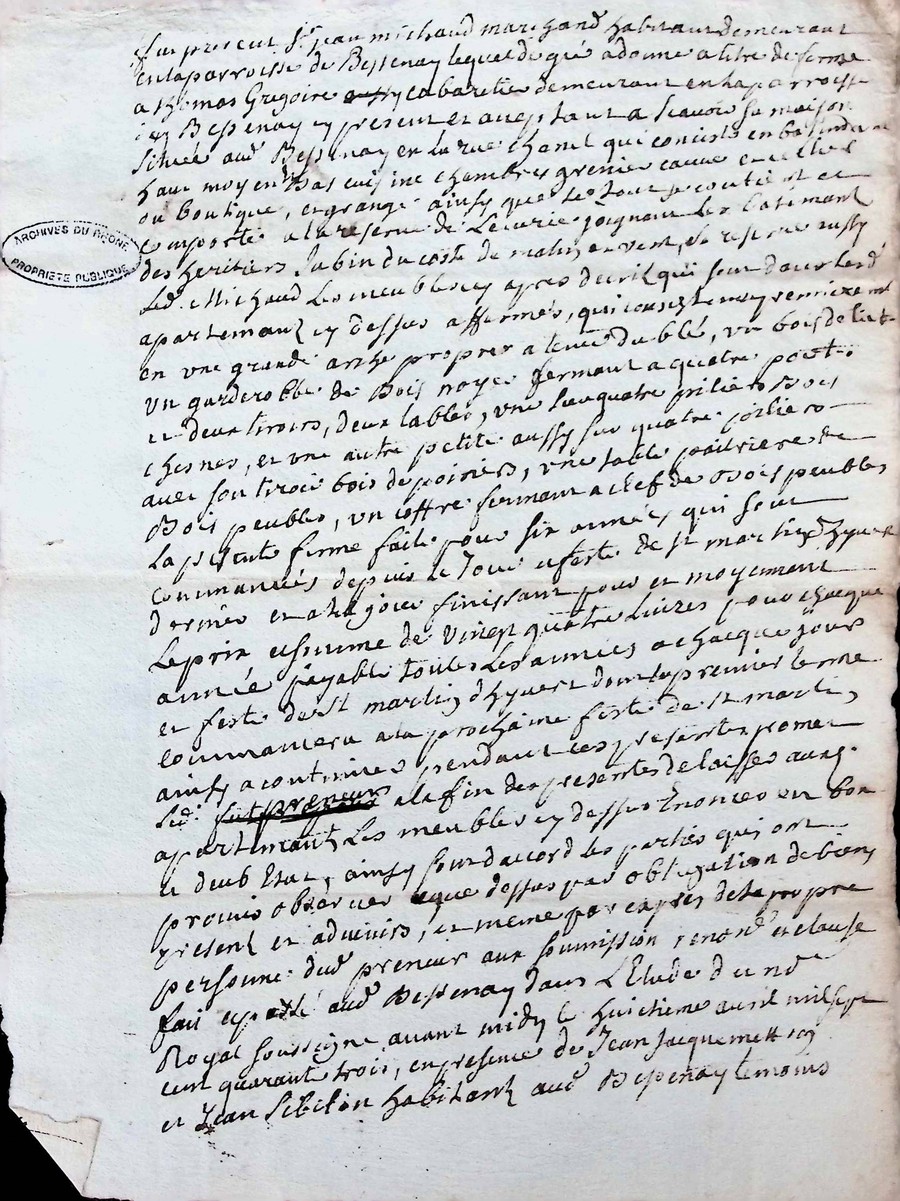 fut present Sr Jean michaud marchand habitant demeurant
en la parroisse de Bessenay lequel de gré a donné a titre de ferme
a thomas Gregoire cabaretier demeurant en la parroisse
Bessenay cy present et acceptant a scavoir sa maison
situee aud Bessenay en la rue chanel qui consiste en batiment
haut moyen bas cuisine chambres grenier cave
ou boutique, et grange ainsy que le tout se contient et
comporte a la reserve de Lecurie joignant les batimant
des heritiers Jubin du coste de matin et vent, se reserve aussy
led. Michaud Les meubles cy apres decrit qui sont dans lesd
apartemant cy dessus affermés, qui consiste
en une grande arche propre a tenir du blé, un bois de lict
un garderobbe de Bois noyer fermant a quatre porte
et deux tiroirs, deux tables, une sur quatre piliers Bois
chesnes, et une autre petite aussy sur quatre piliers
avec son tiroir bois de poiriers, une table paitriere de
Bois peubles, un coffre fermant a clef de Bois peubles
la presente ferme faite pour six années qui sont
commancées depuis le Jour et feste de st martin d'hyvert
dernier et a tel jour finissant pour et moyennent
Le prix et somme de vingt quatre Livres pour chacque
année payable toutes les années a chacque jour
et feste de St martin d'hyvert dont le premier terme
commancera a la prochaine feste de st martin,
ainsy a continuer pendant ces presentes promet
led. preneur a la fin des presentes delaisser auxd.
apartemant Les meubles cy dessus Enoncés en bon
et deub Etat, ainsy sont d'accord les parties qui ont
promis observer que dessus par obligation de biens
present et advenirs, et meme par expres de la propre
personne dud preneur aux soumission renond et clause
fait et passé aud Bessenay dans L'Etude du no
Royal soussigne avant midy le huictieme avril mil sept
cent quarant trois, en presence de Jean Jacquemetton
et Jean Sibilin habitant aud Bessenay temoins
ARCHIVES DU RHONE
PROPRIETE PUBLIQUE